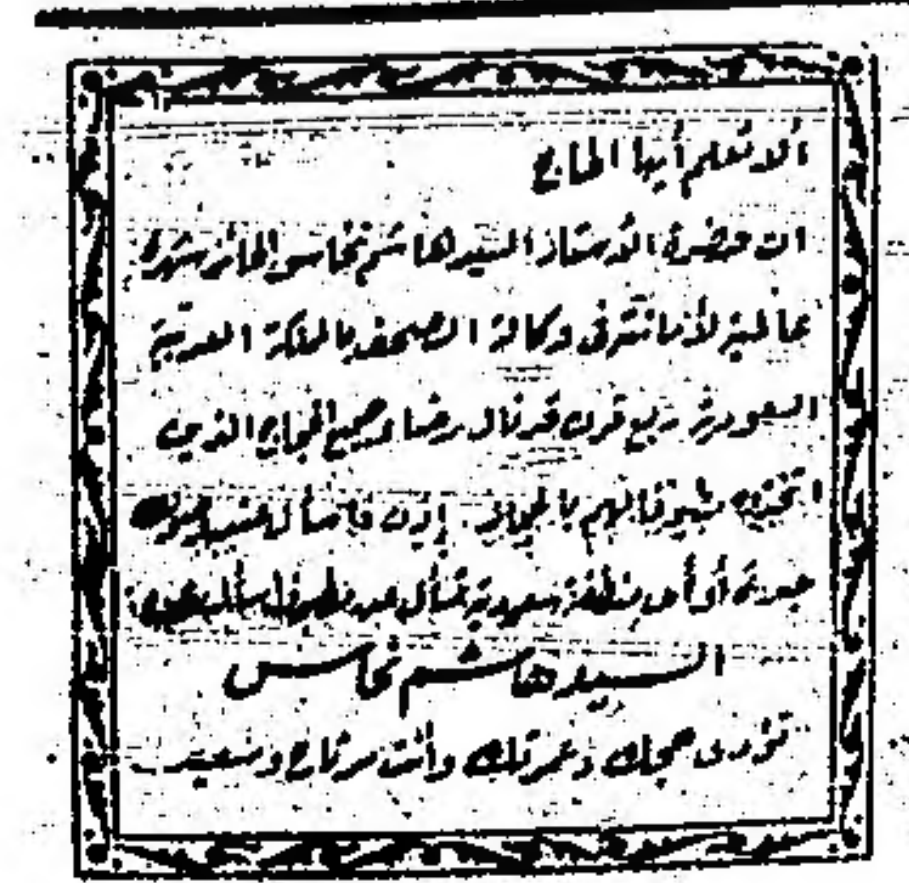 ألا تعلم أيها الحاج
ان حضرة الأستاذ السيد هاشم نحاس الحائز شهرة
عالمية لأمانته في وكالة الصحف بالمملكة العربية
السعودية ربع قرن قد نال رضا جميع الحجاج الذين
اتخذوه لهم بالحجاز. إذن فاسأل عند
جدة أو أي منطقة سعودية عن
السيد هاشم نحاس
تؤدى حجك وعمرتك وأنت مرتاح وسعيد